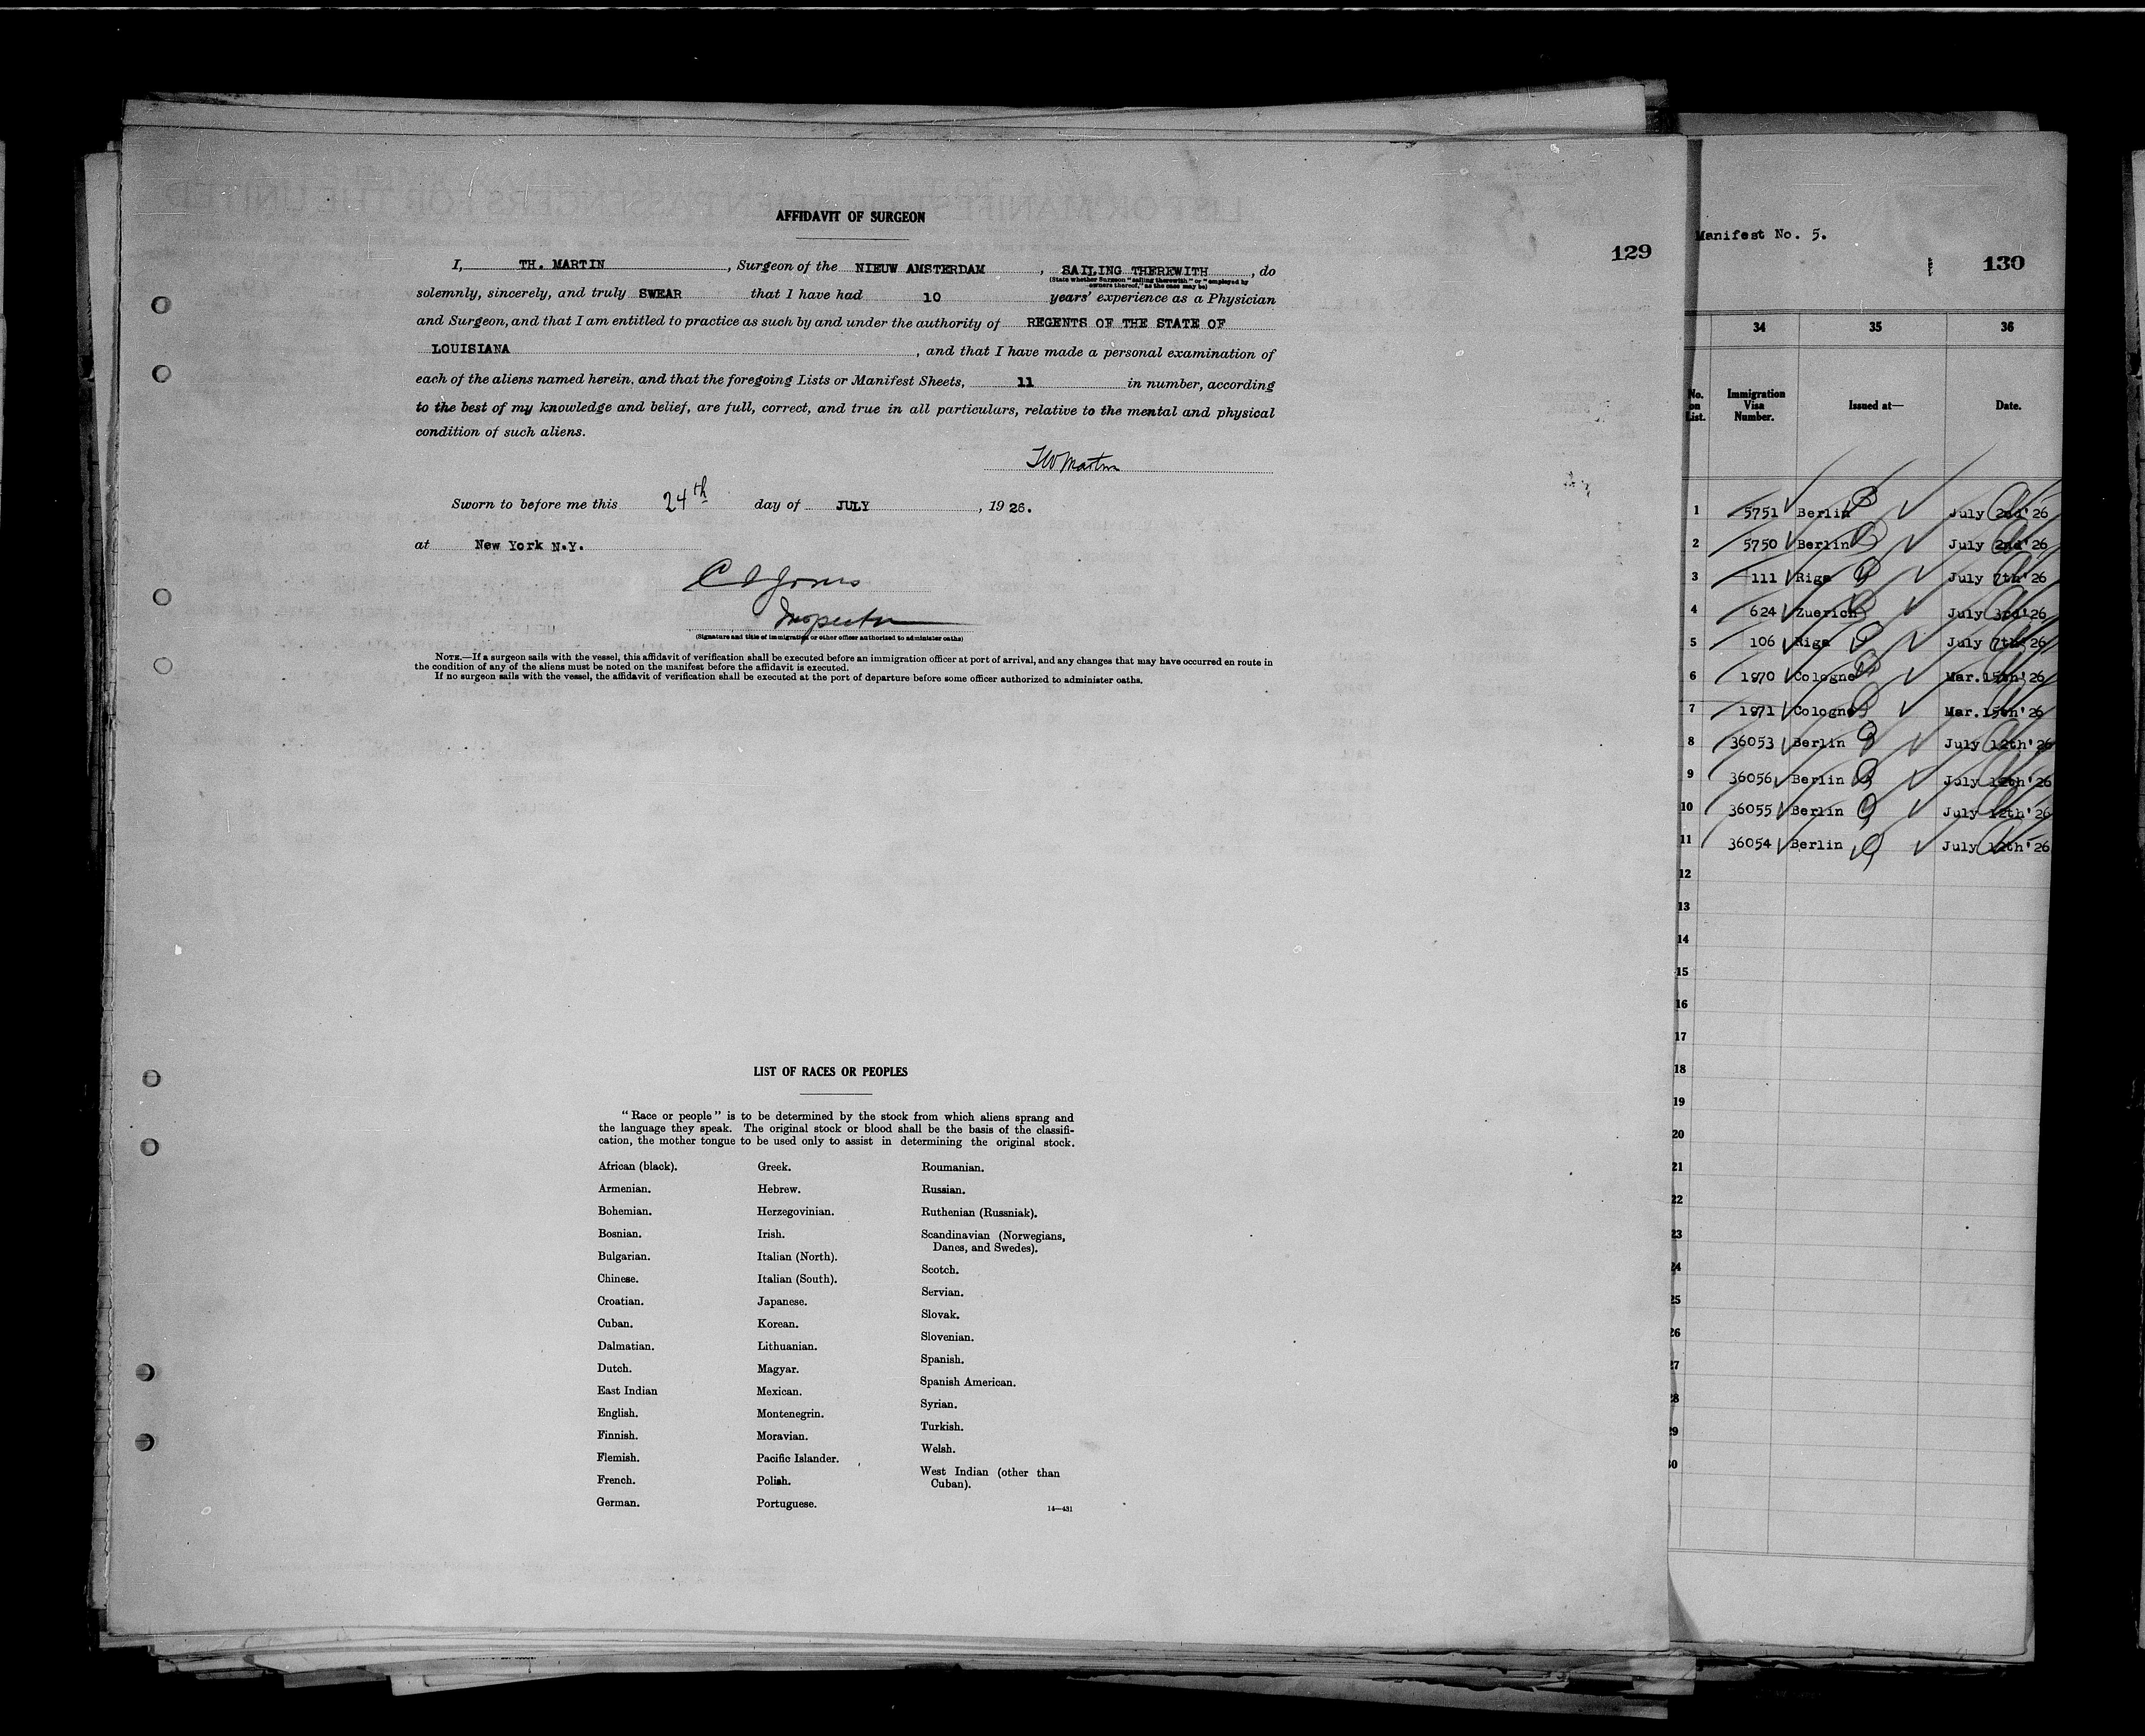 AFFIDAVIT OF SURGEON
129
I, TH. MARTIN, Surgeon of the NIEUW AMSTERDAM, SAILING THEREWITH, do
(State whether Surgeon "sailing therewith" or "employed by
owners thereof," as the case may be)
solemnly, sincerely, and truly SWEAR that I have had 10 years' experience as a Physician
and Surgeon, and that I am entitled to practice as such by and under the authority of REGENTS OF THE STATE OF
LOUISIANA, and that I have made a personal examination of
each of the aliens named herein, and that the foregoing Lists or Manifest Sheets, 11 in number, according
to the best of my knowledge and belief, are full, correct, and true in all particulars, relative to the mental and physical
condition of such aliens.
Martin
Sworn to before me this 24th day of JULY, 1926.
at New York N.Y.
Inspector
(Signature and title of immigration or other officer authorized to administer oaths)
NOTE.—If a surgeon sails with the vessel, this affidavit of verification shall be executed before an immigration officer at port of arrival, and any changes that may have occurred en route in
the condition of any of the aliens must be noted on the manifest before the affidavit is executed.
If no surgeon sails with the vessel, the affidavit of verification shall be executed at the port of departure before some officer authorized to administer oaths.
LIST OF RACES OR PEOPLES
"Race or people" is to be determined by the stock from which aliens sprang and
the language they speak. The original stock or blood shall be the basis of the classifi-
cation, the mother tongue to be used only to assist in determining the original stock.
African (black).
Armenian.
Bohemian.
Bosnian.
Bulgarian.
Chinese.
Croatian.
Cuban.
Dalmatian.
Dutch.
East Indian
English.
Finnish.
Flemish.
French.
German.
Greek.
Hebrew.
Herzegovinian.
Irish.
Italian (North).
Italian (South).
Japanese.
Korean.
Lithuanian.
Magyar.
Mexican.
Montenegrin.
Moravian.
Pacific Islander.
Polish.
Portuguese.
Roumanian.
Russian.
Ruthenian (Russniak).
Scandinavian (Norwegians,
Danes, and Swedes).
Scotch.
Servian.
Slovak.
Slovenian.
Spanish.
Spanish American.
Syrian.
Turkish.
Welsh.
West Indian (other than
Cuban).
14—431
Manifest No. 5.
130
34 35 36
No. on List. Immigration Visa Number. Issued at— Date.
1 5751 Berlin July 2nd'26
2 5750 Berlin July 2nd'26
3 111 Riga July 7th'26
4 624 Zuerich July 3rd'26
5 106 Riga July 7th'26
6 1970 Cologne Mar.15th'26
7 1971 Cologne Mar.15th'26
8 36053 Berlin July 12th'26
9 36056 Berlin July 12th'26
10 36055 Berlin July 12th'26
11 36054 Berlin July 12th'26
12
13
14
15
16
17
18
19
20
21
22
23
24
25
26
27
28
29
30